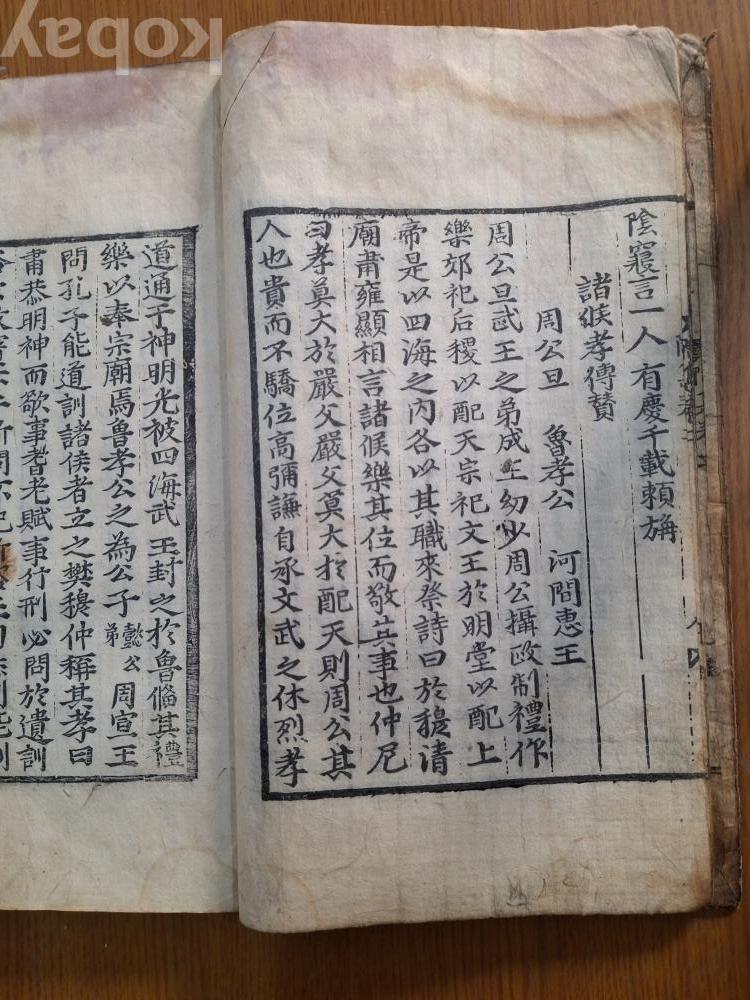 陰寴言一人有慶千載賴旃
諸侯孝傳贊
周公旦 魯孝公 河間惠王
周公旦武王之弟成王幼少周公攝政制禮作
樂郊祀后稷以配天宗祀文王於明堂以配上
帝是以四海之內各以其職來祭詩曰於穆清
廟肅雍顯相言諸侯樂其位而敬其事也仲尼
曰孝莫大於嚴父嚴父莫大於配天則周公其
人也貴而不驕位高彌謙自承文武之休烈孝
道通于神明光被四海武王封之於魯俻其禮
樂以奉宗廟焉魯孝公之為公子懿公弟周宣王
問孔子能道訓諸侯者立之樊穆仲稱其孝曰
肅恭明神而敬事耆老賦事行刑必問於遺訓
kobay